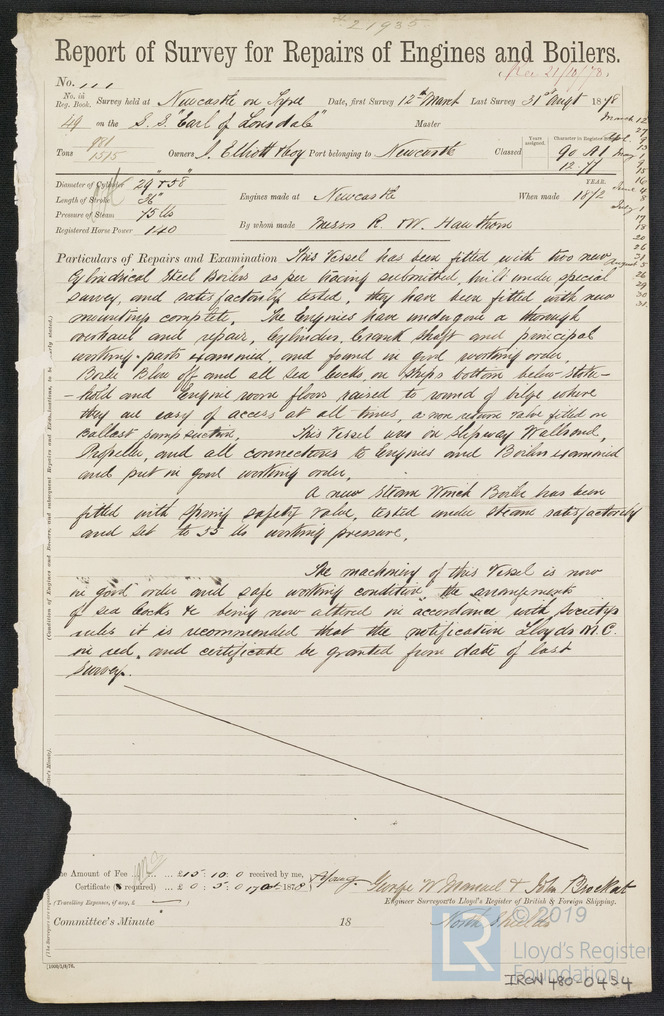 21935
Report of Survey for Repairs of Engines and Boilers.
Rec 21/10/78.
No.
No. in Reg. Book. Survey held at Newcastle on Tyne Date, first Survey 12th March Last Survey 31st Augt 1878
49 on the S. S. "Earl of Lonsdale" Master
Tons 981 / 1515 Owners J. Elliott & Coy Port belonging to Newcastle Classed Years assigned. Character in Register 90 A1 12.77
Diameter of Cylinder 29" & 58"
Length of Stroke 36"
Pressure of Steam 75 lbs
Registered Horse Power 140
Engines made at Newcastle When made YEAR. 1872
By whom made Messrs R. & W. Hawthorn
March 12
27
9
13
May 1
9
15
16
June 4
8
July 1
17
18
20
26
31
August 5
26
29
30
31
Particulars of Repairs and Examination This Vessel has been fitted with two new
Cylindrical Steel Boilers as per tracing submitted, built under special
survey, and satisfactorily tested, they have been fitted with new
mountings complete. The Engines have undergone a thorough
overhaul and repair, Cylinders, Crank shaft and principal
working parts examined, and found in good working order.
Boiler Blow off and all sea Cocks on ships bottom below stoke-
-hold and Engine room floors raised to round of bilge where
they are easy of access at all times, a non return valve fitted on
Ballast pump suction. This Vessel was on Slipway Wallsend,
Propeller, and all connections to Engines and Boilers examined
and put in good working order.
A new steam Winch Boiler has been
fitted with spring safety valve, tested under steam satisfactorily
and set to 55 lbs working pressure.
The machinery of this Vessel is now
in good order and safe working condition, the arrangements
of sea Cocks &c being now altered in accordance with Society's
rules it is recommended that the notification Lloyds M.C.
in red, and certificate be granted from date of last
Survey.
(Condition of Engines and Boilers, and subsequent Repairs and Examinations, to be
The Amount of Fee ... £15 : 10 : 0 received by me,
Certificate (if required) ... £ 0 : 5 : 0 17 Oct 1878
(Travelling Expenses, if any, £
George W Manuel & John Brockat
Engineer Surveyors to Lloyd's Register of British & Foreign Shipping.
Committee's Minute 18
North Shields
LR
© 2019
Lloyd's Register
Foundation
IRON 480-0454